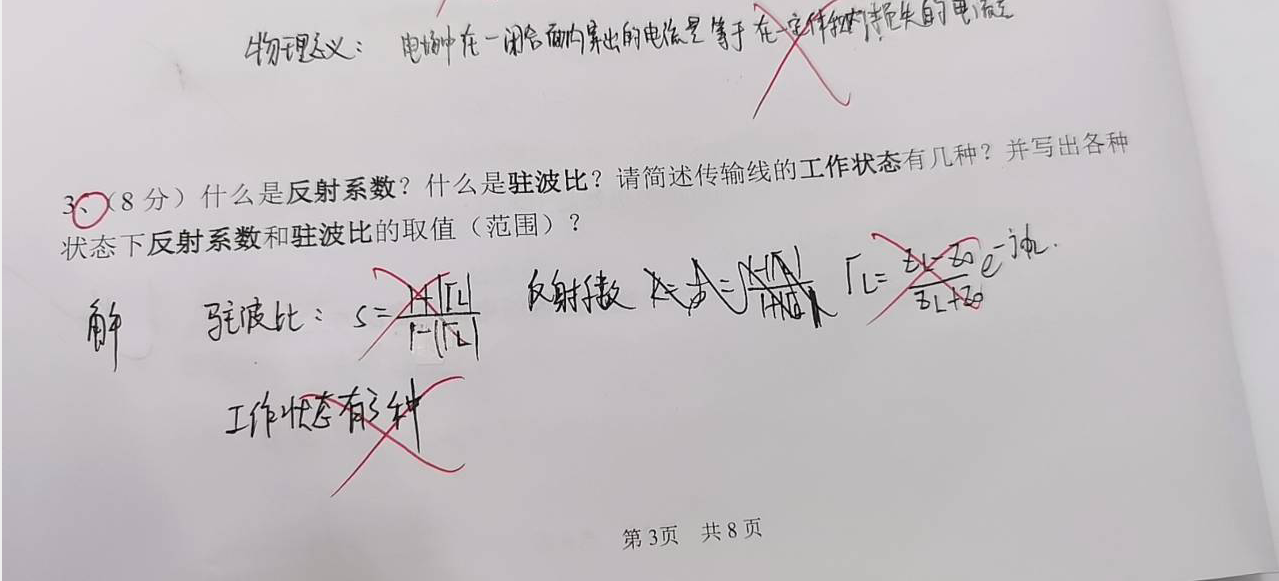 物理意义： 电场中在一闭合面内穿出的电流是等于在一定体积内损失的电流
3、（8 分）什么是反射系数？什么是驻波比？请简述传输线的工作状态有几种？并写出各种
状态下反射系数和驻波比的取值（范围）？
解 驻波比：S=\frac{1+|Γ_L|}{1-|Γ_L|} 反射系数 Γ_L=\frac{Z_L-Z_0}{Z_L+Z_0}e^{-jφ_L}.
工作状态有3种
第 3页 共 8 页